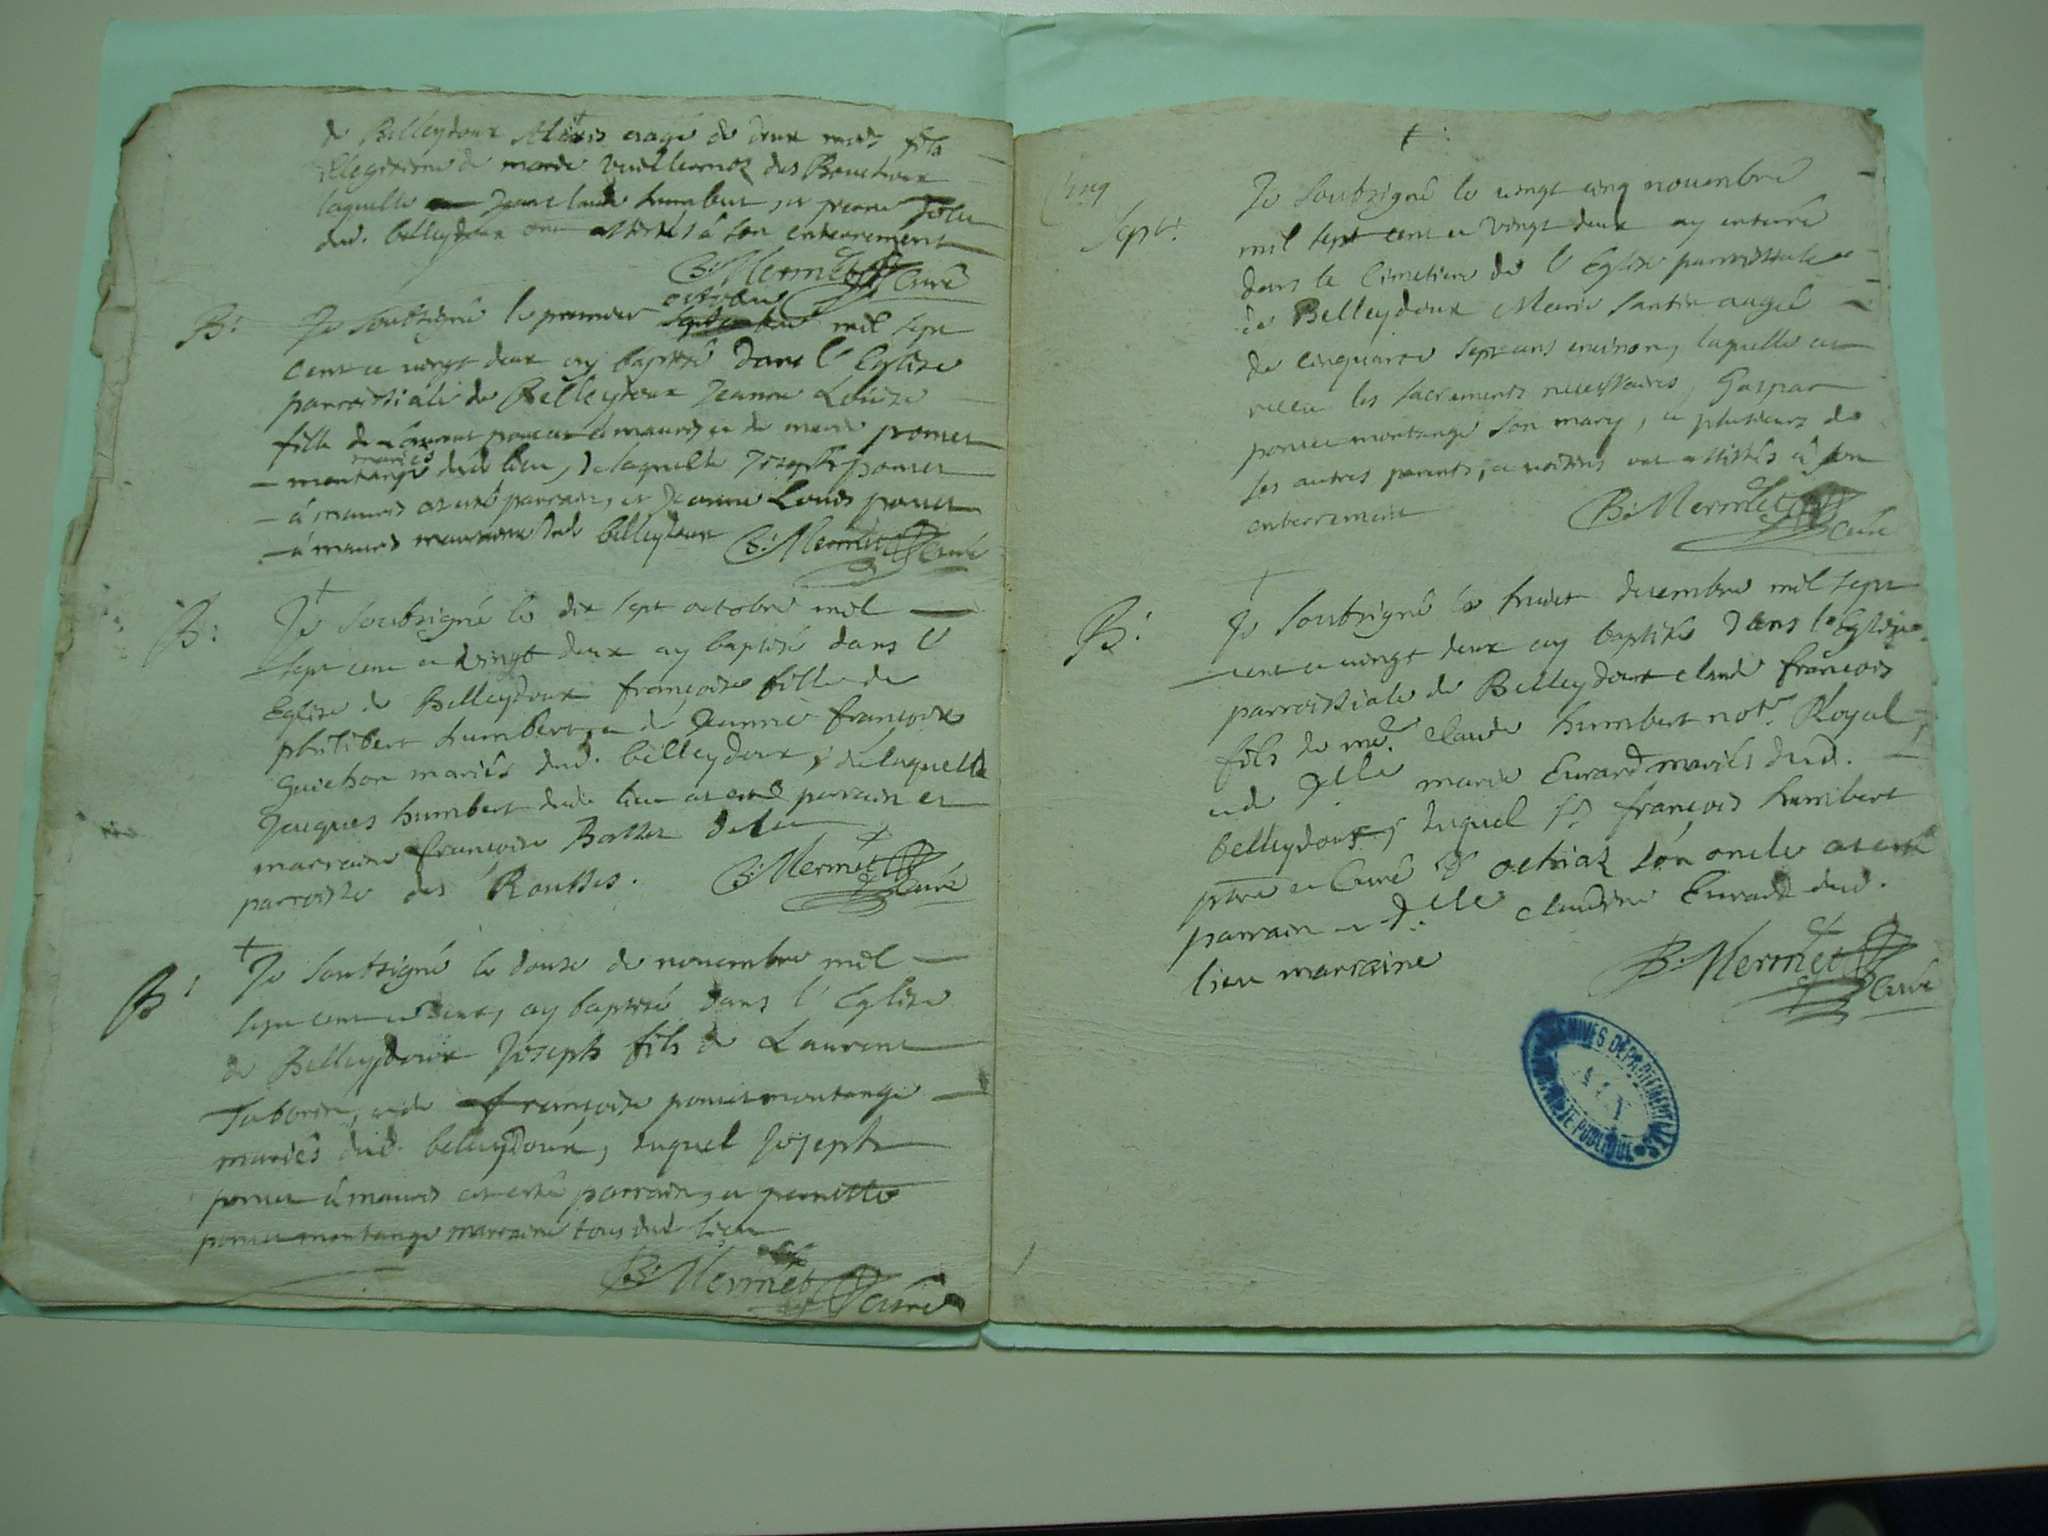 de Belleydoux Alexis aagé de deux mois fils
illegitime de marie Vuillermoz des Bouchoux
laquelle Jean claude humbert, et pierre
dud. belleydoux ont assistés à son enterrement
B: Mermet Curé
B: Je soubsigné le premier octobre mil sept
cent et vingt deux ay baptisé dans l'Eglise
parroissiale de Belleydoux Jeanne Louise
fille de Laurent poncet à mauris et de marie poncet
montange mariés dud. lieu, de laquelle Joseph poncet
à mauris at esté parrain, et Jeanne Louis poncet
à mauris marraine dud. belleydoux B: Mermet Curé
B: Je soubsigné le dix sept octobre mil
sept cent et vingt deux ay baptisé dans l'
Eglise de Belleydoux françoise fille de
philibert humbert, et de Jeanne françoise
Guichon mariés dud. belleydoux, de laquelle
Jacques humbert dud. lieu at esté parrain et
marraine françoise de la
parroisse des Rousses. B: Mermet Curé
B: Je soubsigné le douze de novembre mil
sept cent et deux, ay baptisé dans l'Eglise
de Belleydoux Joseph fils de Laurent
Taborin, et de françoise poncet montange
mariés dud. belleydoux, duquel Joseph
poncet à mauris at esté parrain, et pernette
poncet montange marraine tous dud. lieu
B: Mermet Curé
Cinq
Sept:
Je soubsigné le vingt cinq novembre
mil sept cent et vingt deux ay enterré
dans le Cimetiere de l'Eglise parroissiale
de Belleydoux Marie santin aagée
de cinquante sept ans environ, laquelle at
receu les sacrements necessaires, Gaspar
poncet montange son mary, et plusieurs de
ses autres parents, et voisins ont assistés à son
enterrement B: Mermet Curé
B: Je soubsigné le huict decembre mil sept
cent et vingt deux ay baptisé dans l'Eglise
parroissiale de Belleydoux claude françois
fils de me. claude humbert notr. Royal
et de dlle marie Evrard mariés dud.
belleydoux, duquel sr. françois humbert
ptre et Curé d'ochiaz son oncle at esté
parrain et dlle claudine Evrard dud.
lieu marraine B: Mermet Curé
ARCHIVES DEPARTEMENTALES
AIN